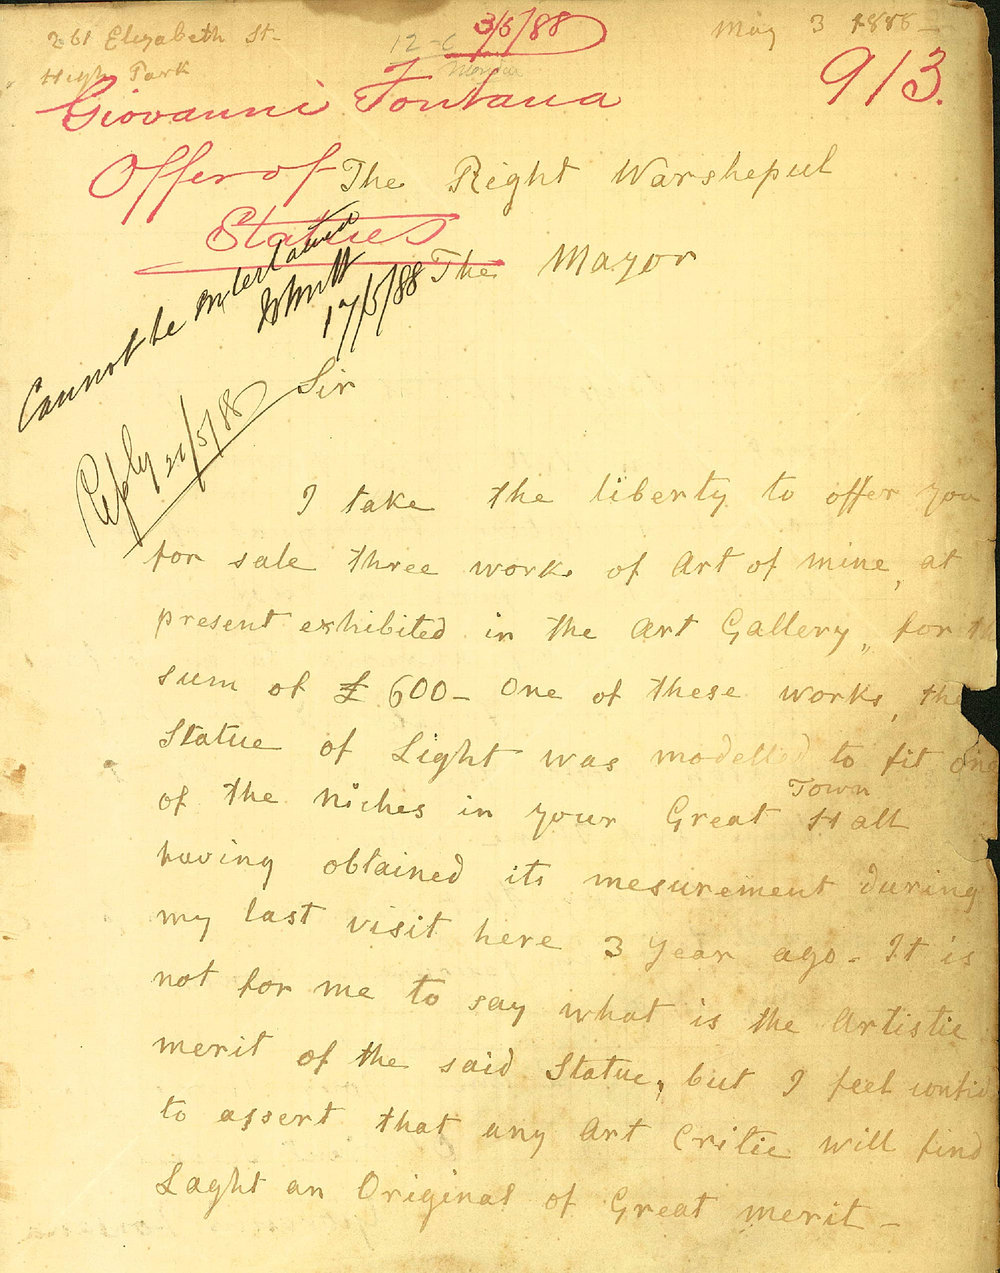 261 Elizabeth St-
Hyde Park
May 3 1888-
12-6
3/5/88
913.
Giovanni Fontana
Offer of
Statues
The Right Warshepul
The Mayor
Cannot be entertained
17/5/88
Reply 21/5/88
Sir
I take the liberty to offer you
for sale three works of Art of mine, at
present exhibited in the Art Gallery, for th
sum of £600- One of these works, the
Statue of Light was modelled to fit one
of the niches in your Great Town Hall
having obtained its mesurement during
my last visit here 3 Year ago- It is
not for me to say what is the Artistic
merit of the said Statue, but I feel confid
to assert that any Art Critic will find
Laght an Original of Great merit-